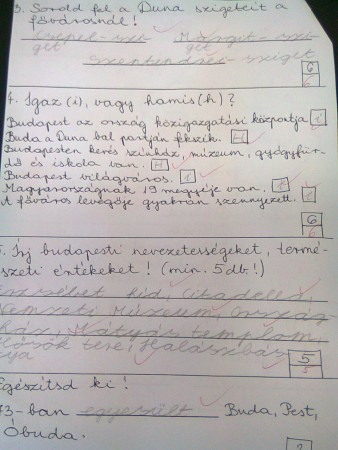 3. Sorold fel a Duna szigeteit a
fővárosnál!
Csepel-szi- Margit-szi-
get get
Szentendrei-sziget
6
6
4. Igaz (i), vagy hamis (h)?
Budapest az ország közigazgatási központja. i
Buda a Duna bal partján fekszik. H
Budapesten kevés színház, múzeum, gyógyfür-
dő és iskola van. H
Budapest világváros. I
Magyarországnak 19 megyéje van. I
A főváros levegője gyakran szennyezett. I
6
6
5. Írj budapesti nevezetességeket, termé-
szeti értékeket! (min. 5 db!)
Erzsébet híd, Citadella,
Nemzeti Múzeum, Ország-
ház, Mátyás templom,
Hősök tere, Halászbás-
tyja
5
5
egészítsd ki!
73-ban egyesült Buda, Pest,
Óbuda.